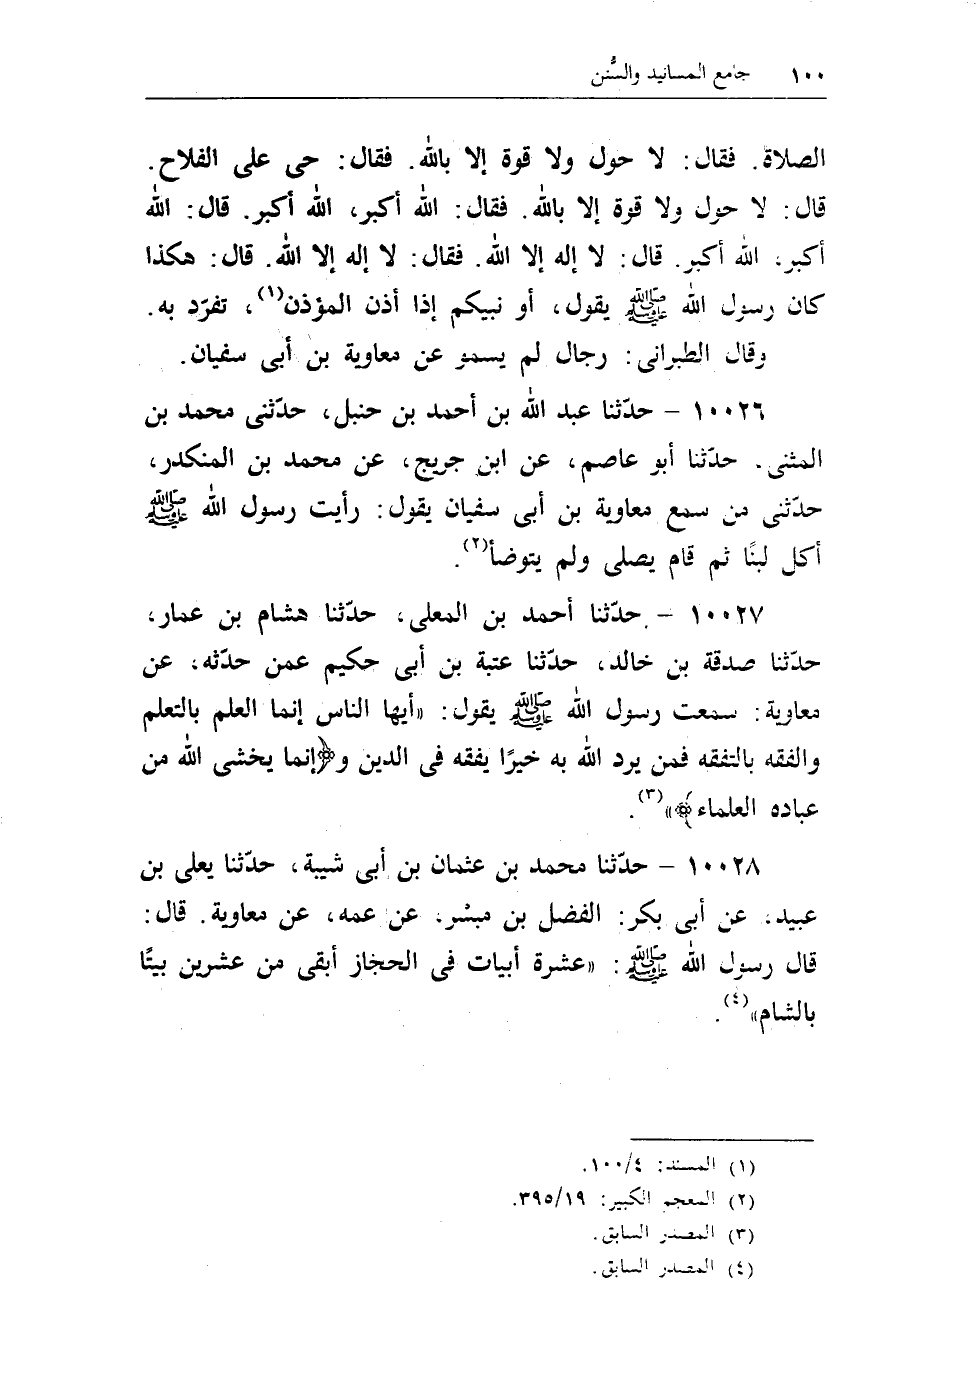 ١٠٠ جامع المسانيد والسُّنن
الصلاة. فقال: لا حول ولا قوة إلا بالله. فقال: حى على الفلاح.
قال: لا حول ولا قوة إلا بالله. فقال: الله أكبر، الله أكبر. قال: الله
أكبر، الله أكبر. قال: لا إله إلا الله. فقال: لا إله إلا الله. قال: هكذا
كان رسول الله ﷺ يقول، أو نبيكم إذا أذن المؤذن(١)، تفرّد به.
وقال الطبرانى: رجال لم يسمو عن معاوية بن أبى سفيان.
١٠٠٢٦ – حدّثنا عبد الله بن أحمد بن حنبل، حدّثنى محمد بن
المثنى. حدّثنا أبو عاصم، عن ابن جريج، عن محمد بن المنكدر،
حدّثنى من سمع معاوية بن أبى سفيان يقول: رأيت رسول الله ﷺ
أكل لبنًا ثم قام يصلى ولم يتوضأ(٢).
١٠٠٢٧ – حدّثنا أحمد بن المعلى، حدّثنا هشام بن عمار،
حدّثنا صدقة بن خالد، حدّثنا عتبة بن أبى حكيم عمن حدّثه، عن
معاوية: سمعت رسول الله ﷺ يقول: «أيها الناس إنما العلم بالتعلم
والفقه بالتفقه فمن يرد الله به خيرًا يفقه فى الدين و﴿إنما يخشى الله من
عباده العلماء﴾»(٣).
١٠٠٢٨ – حدّثنا محمد بن عثمان بن أبى شيبة، حدّثنا يعلى بن
عبيد، عن أبى بكر: الفضل بن مبشر، عن عمه، عن معاوية. قال:
قال رسول الله ﷺ: «عشرة أبيات فى الحجاز أبقى من عشرين بيتًا
بالشام»(٤).
(١) المسند: ٤/١٠٠.
(٢) المعجم الكبير: ١٩/٣٩٥.
(٣) المصدر السابق.
(٤) المصدر السابق.